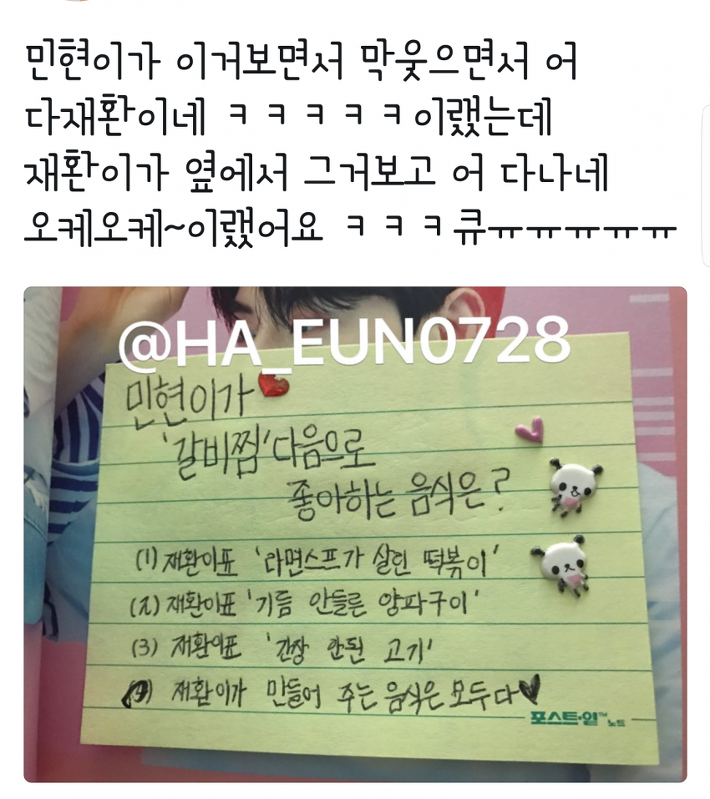 민현이가 이거보면서 막웃으면서 어
다재환이네 ㅋ ㅋ ㅋ ㅋ ㅋ이랬는데
재환이가 옆에서 그거보고 어 다나네
오케오케~이랬어요 ㅋ ㅋ ㅋ큐ㅠㅠㅠㅠㅠ
@HA_EUN0728
민현이가
'갈비찜' 다음으로
좋아하는 음식은?
(1) 재환이표 '라면스프가 살린 떡볶이'
(2) 재환이표 '기름 안들른 양파구이'
(3) 재환이표 '간장 안된 고기'
(4) 재환이가 만들어 주는 음식은 모두다♥
포스트-잇™노트